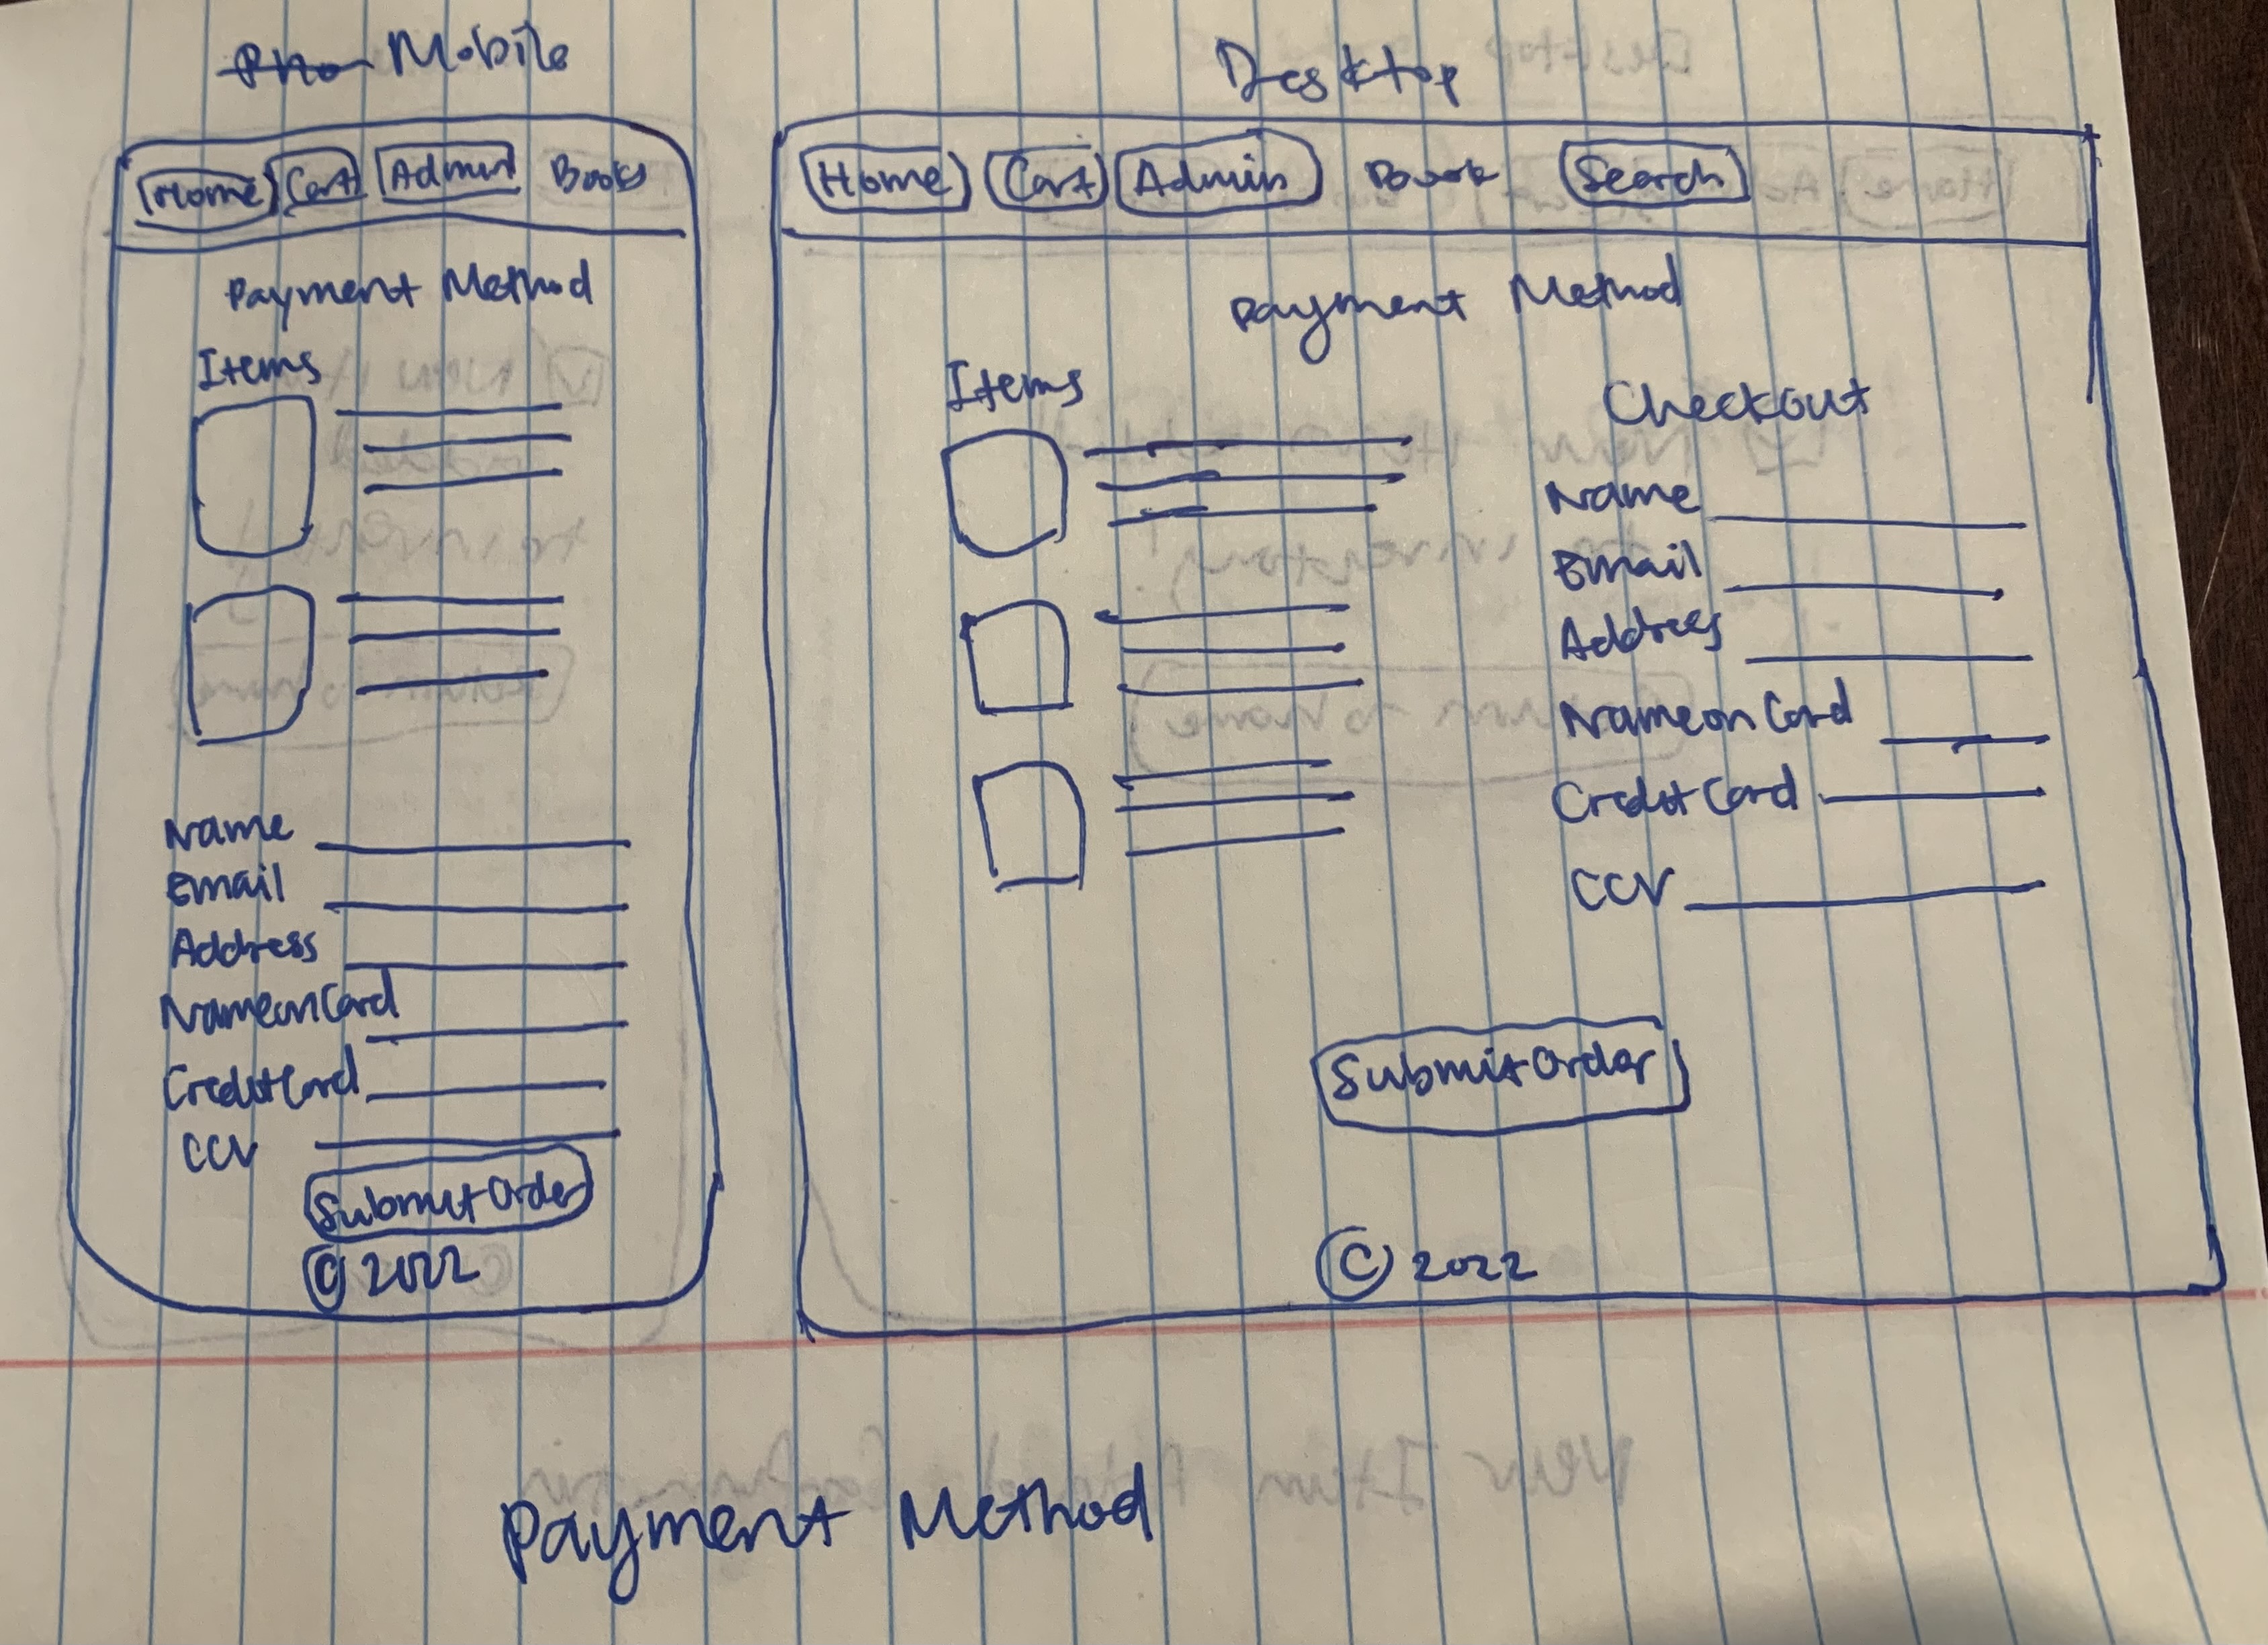 Pho Mobile
Home Cart Admin Books
Payment Method
Items
Name
Email
Address
Name on Card
Credit Card
CCV
Submit Order
© 2022
Desktop
Home Cart Admin Book Search
Payment Method
Items
Checkout
Name
Email
Address
Name on Card
Credit Card
CCV
Submit Order
© 2022
Payment Method